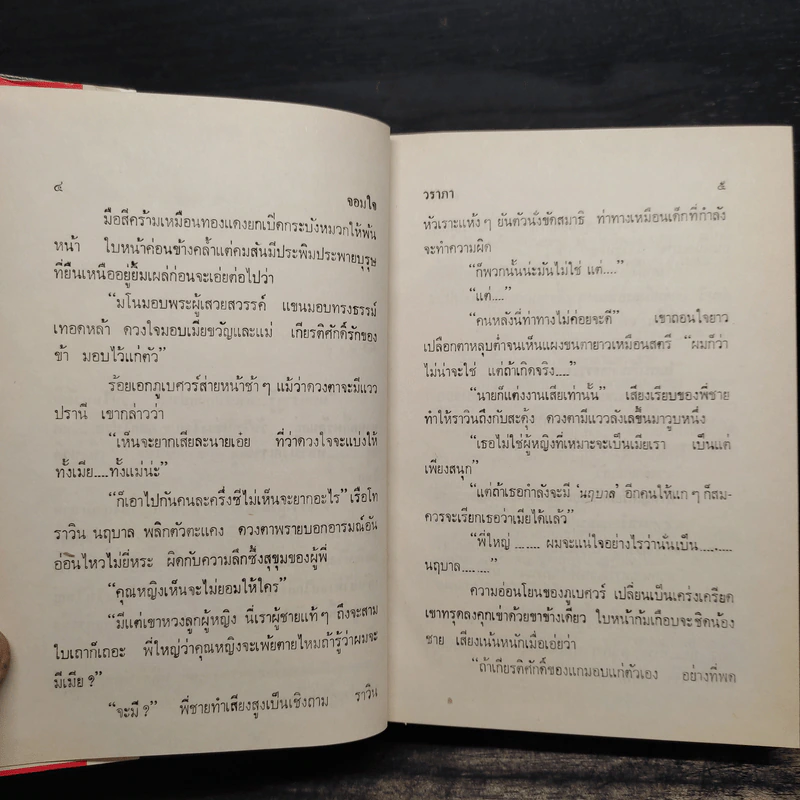 ๔
จอมใจ
มือสีคร้ามเหมือนทองแดงยกเปิดกระบังหมวกให้พ้น
หน้า ใบหน้าค่อนข้างคล้ำแต่คมสันมีประพิมประพายบุรุษ
ที่ยืนเหนืออยู่ยิ้มเผล่ก่อนจะเอ่ยต่อไปว่า
“มโนมอบพระผู้เสวยสวรรค์ แขนมอบทรงธรรม์
เทอดหล้า ดวงใจมอบเมียขวัญและแม่ เกียรติศักดิ์รักของ
ข้า มอบไว้แก่ตัว”
ร้อยเอกภูเบศวร์ส่ายหน้าช้าๆ แม้ว่าดวงตาจะมีแวว
ปรานี เขากล่าวว่า
“เห็นจะยากเสียละนายเอ๋ย ที่ว่าดวงใจจะแบ่งให้
ทั้งเมีย....ทั้งแม่น่ะ”
“ก็เอาไปกันคนละครึ่งซีไม่เห็นจะยากอะไร” เรือโท
ราวิน นฤบาล พลิกตัวตะแคง ดวงตาพรายบอกอารมณ์อัน
อ่อนไหวไม่ยี่หระ ผิดกับความลึกซึ้งสุขุมของผู้พี่
“คุณหญิงเห็นจะไม่ยอมให้ใคร”
“มีแต่เขาหวงลูกผู้หญิง นี่เราผู้ชายแท้ๆ ถึงจะสาม
ใบเถาก็เถอะ พี่ใหญ่ว่าคุณหญิงจะเพ้ยตายไหมถ้ารู้ว่าผมจะ
มีเมีย ?”
“จะมี ?” พี่ชายทำเสียงสูงเป็นเชิงถาม ราวิน
วราภา
๕
หัวเราะแห้งๆ ยันตัวนั่งขัดสมาธิ ท่าทางเหมือนเด็กที่กำลัง
จะทำความผิด
“ก็พวกนั้นน่ะมันไม่ใช่ แต่....”
“แต่....”
“คนหลังนี่ท่าทางไม่ค่อยจะดี” เขาถอนใจยาว
เปลือกตาหลุบต่ำจนเห็นแผงขนตายาวเหมือนสตรี “ผมก็ว่า
ไม่น่าจะใช่ แต่ถ้าเกิดจริง....”
“นายก็แต่งงานเสียเท่านั้น” เสียงเรียบของพี่ชาย
ทำให้ราวินถึงกับสะดุ้ง ดวงตามีแววลังเลขึ้นมาวูบหนึ่ง
“เธอไม่ใช่ผู้หญิงที่เหมาะจะเป็นเมียเรา เป็นแต่
เพียงสนุก”
“แต่ถ้าเธอกำลังจะมี ‘นฤบาล’ อีกคนให้แกๆ ก็สม-
ควรจะเรียกเธอว่าเมียได้แล้ว”
“พี่ใหญ่ ........ ผมจะแน่ใจอย่างไรว่านั่นเป็น.........
นฤบาล........”
ความอ่อนโยนของภูเบศวร์ เปลี่ยนเป็นเคร่งเครียด
เขาทรุดลงคุกเข่าด้วยขาข้างเดียว ใบหน้าก้มเกือบจะชิดน้อง
ชาย เสียงเน้นหนักเมื่อเอ่ยว่า
“ถ้าเกียรติศักดิ์ของแกมอบแก่ตัวเอง อย่างที่พูด